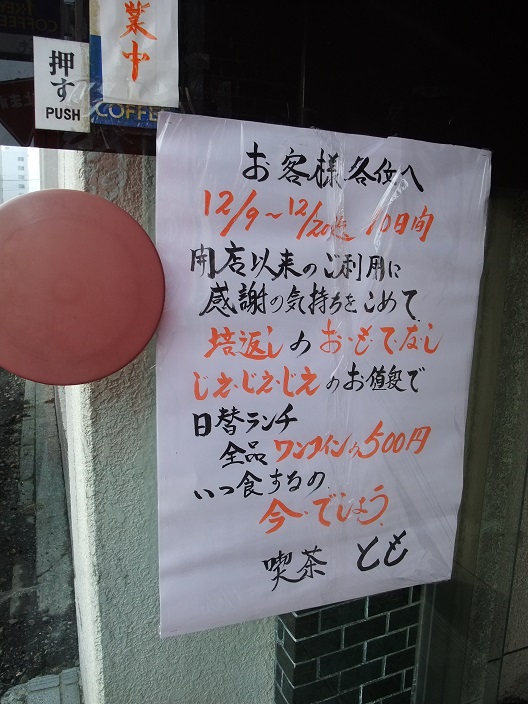 営業中
押す
PUSH
COFFEE
お客様各位へ
12/9~12/20迄 10日間
開店以来のご利用に
感謝の気持ちをこめて
培返しのお・も・て・なし
じぇ・じぇ・じぇのお値段で
日替ランチ
全品ワンコインの500円
いつ食するの
今・でしょう
喫茶 とも